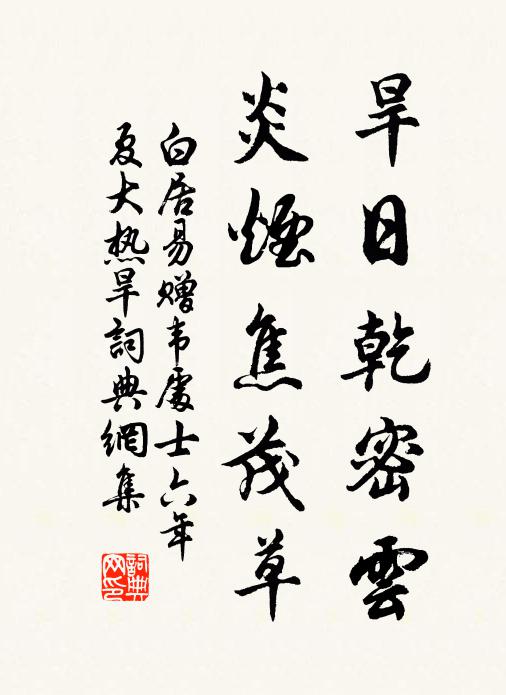 旱日乾密雲
炎煙焦茂草
白居易贈韦處士六年
夏大热旱詞典網集
詞典
网印